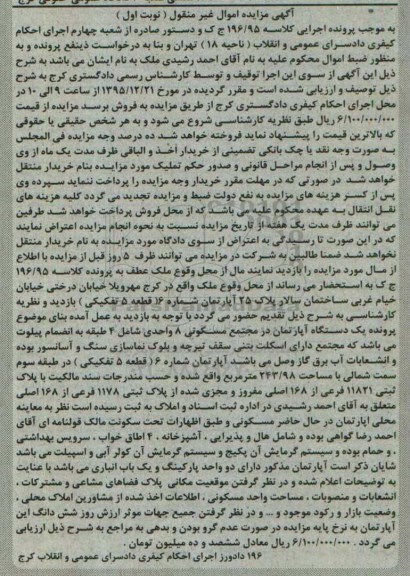 آگهی مزایده اموال غیر منقول ( نوبت اول )
به موجب پرونده اجرایی کلاسه ۱۹۶/۹۵ ج ک و دستور صادره از شعبه چهارم اجرای احکام
کیفری دادسرای عمومی و انقلاب ( ناحیه ۱۸ ) تهران و بنا به درخواست ذینفع پرونده و به
منظور ضبط اموال محکوم علیه به نام آقای احمد رشیدی ملک به نام ایشان می باشد به شرح
ذیل این آگهی از سوی این اجرا توقیف و توسط کارشناس رسمی دادگستری کرج به شرح
ذیل توصیف و ارزیابی شده است و مقرر گردیده در مورخ ۱۳۹۵/۱۲/۲۱ از ساعت ۹ الی ۱۰ در
محل اجرای احکام کیفری دادگستری کرج از طریق مزایده به فروش برسد مزایده از قیمت
۶/۱۰۰/۰۰۰/۰۰۰ ریال طبق نظریه کارشناسی شروع می شود و به هر شخص حقیقی یا حقوقی
که بالاترین قیمت را پیشنهاد نماید فروخته خواهد شد ده درصد وجه مزایده فی المجلس
به صورت وجه نقد یا چک بانکی تضمینی از خریدار أخذ و الباقی ظرف مدت یک ماه از وی
وصول و پس از انجام مراحل قانونی و صدور حکم تملیک مورد مزایده بنام خریدار منتقل
خواهد شد در صورتی که در مهلت مقرر خریدار وجه مزایده را پرداخت ننماید سپرده وی
پس از کسر هزینه های مزایده به نفع دولت ضبط و مزایده تجدید می گردد کلیه هزینه های
نقل انتقال به عهده محکوم علیه می باشد که از محل فروش پرداخت خواهد شد طرفین
می توانند ظرف مدت یک هفته از تاریخ مزایده نسبت به نحوه انجام مزایده اعتراض نمایند
که در این صورت تا رسیدگی به اعتراض از سوی دادگاه مورد مزایده به نام خریدار منتقل
نخواهد شد ضمنا طالبین به شرکت در مزایده می توانند ظرف ۵ روز قبل از مزایده با اطلاع
از مال مورد مزایده را بازدید نمایند مال از محل وقوع ملک عطف به پرونده کلاسه ۱۹۶/۹۵
ج ک به استحضار می رساند از محل وقوع ملک واقع در کرج مهرویلا خیابان درختی خیابان
خیام غربی ساختمان سالار پلاک ۲۵ آپارتمان شماره ۱۶( قطعه ۵ تفکیکی ) بازدید و نظریه
کارشناسی به شرح ذیل تقدیم حضور می گردد با توجه به بازدید به عمل آمده بنای موضوع
پرونده یک دستگاه آپارتمان در مجتمع مسکونی ۸ واحدی شامل ۴ طبقه به انضمام پیلوت
می باشد که مجتمع دارای اسکلت بتنی سقف تیرچه و بلوک نماسازی سنگ و آسانسور بوده
و انشعابات آب برق گاز وصل می باشد آپارتمان شماره ۶ ( قطعه ۵ تفکیکی ) در طبقه سوم
سمت شمالی با مساحت ۲۴۳/۹۸ مترمربع واقع شده و حسب مندرجات سند مالکیت با پلاک
ثبتی ۱۱۸۲۱ فرعی از ۱۶۸ اصلی مفروز و مجزی شده از پلاک ثبتی ۱۱۷۸ فرعی از ۱۶۸ اصلی
متعلق به آقای احمد رشیدی در اداره ثبت اسناد و املاک به ثبت رسیده است نظر به معاینه
محلی آپارتمان در حال حاضر مسکونی و طبق اظهارات تحت سکونت مالک قولنامه ای آقای
احمد رضا گواهی بوده و شامل هال و پذیرایی ، آشپزخانه ، ۴ اطاق خواب ، سرویس بهداشتی
، و حمام بوده و سیستم گرمایش آن پکیج و سیستم گرمایش آن کولر آبی و اسپیلت می باشد
شایان ذکر است آپارتمان مذکور دارای دو واحد پارکینگ و یک باب انباری می باشد با عنایت
به توضیحات اعلام شده و در نظر گرفتن موقعیت مکانی پلاک فضاهای مشاعی و مشترکات ،
انشعابات و منصوبات ، مساحت واحد مسکونی ، اطلاعات اخذ شده از مشاورین املاک محلی ،
وضعیت بازار و رکود موجود و ... و در نظر گرفتن جمیع جهات موثر ارزش روز شش دانگ این
آپارتمان به نرخ پایه مزایده در صورت عدم گرو بودن و بدهی به مراجع به شرح ذیل ارزیابی
می گردد . ۶/۱۰۰/۰۰۰/۰۰۰ ریال معادل ششصد و ده میلیون تومان .
۱۹۶ دادورز اجرای احکام کیفری دادسرای عمومی و انقلاب کرج